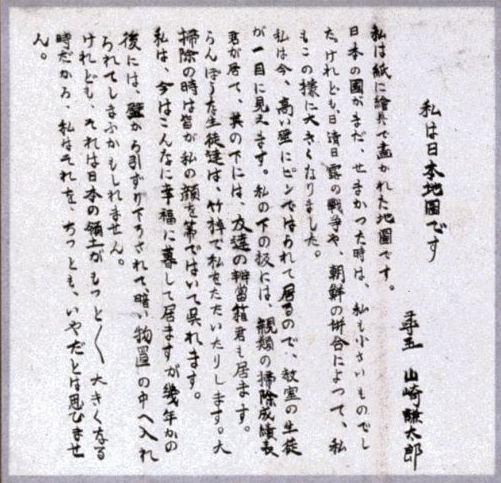 私は日本地圖です
尋五 山崎謙太郎
私は紙に繪具で畫かれた地圖です。
日本の國がまだ、せまかつた時は、私も小さいものでし
た。けれども、日清日露の戰爭や、朝鮮の併合によつて、私
もこの樣に大きくなりました。
私は今、高い壁にピンではられて居るので、教室の生徒
が一目に見えます。私の下の板には、親類の掃除成績表
君が居て、其の下には、友達の辨當箱君も居ます。
らんぼうな生徒達は、竹棹で私をたたいたりします。大
掃除の時は皆が私の顔を箒ではいて呉れます。
私は、今はこんなに幸福に暮して居ますが幾年かの
後には、壁から引ずり下ろされて、暗い物置の中へ入れ
られてしまふかもしれません。
けれども、それは日本の領土がもつと〱大きくなる
時だから、私はそれを、ちつとも、いやだとは思ひませ
ん。